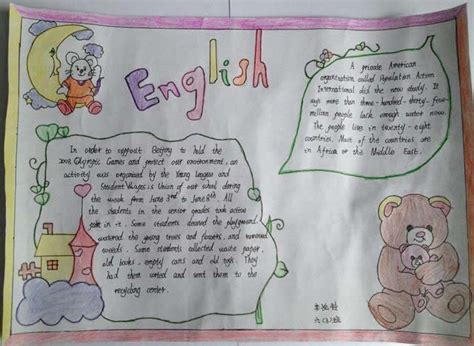 English
In order to support Beijing to hold the
2008 Olympic Games and protect our environment, an
activity was organized by the Young league and
Student Union of our school during
the week from June 3rd to June 8th. All
the students in the senior grades took action
in it. Some students cleaned the playground,
watered the young trees and flowers, and removed
weeds. Some students collected waste paper,
old books, empty cans and old rags. They
had them sorted and sent them to the
recycling center.
A private American
organization called Population Action
International did the new study. It
says more than three-hundred-thirty-five
million people lack enough water now.
The people live in twenty-eight
countries. Most of the countries are
in Africa or the Middle East.